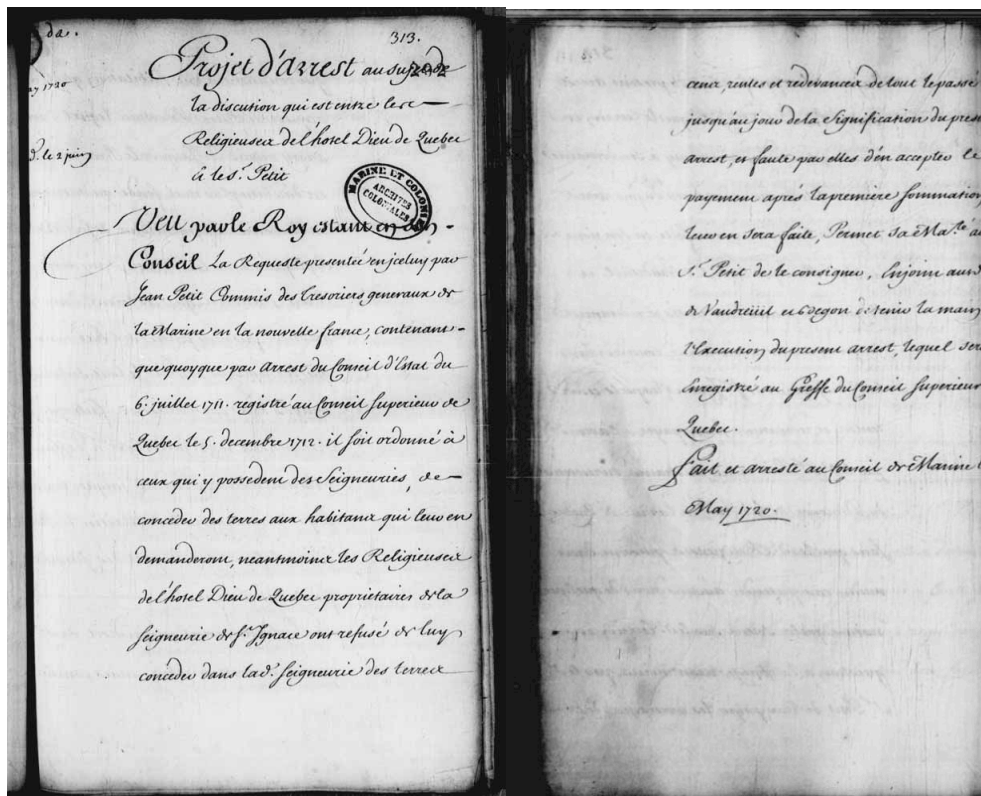 da.
313.
Projet d'arrest au sujet de
202
la discution qui est entre les
ay 1720
Religieuses de l'hotel Dieu de Quebec
d. le 2 juin
& le Sr. Petit
MARINE ET COLONIES
ARCHIVES
COLONIALES
Veu par le Roy estant en son
Conseil La Requeste presentée en jceluy par
Jean Petit Commis des Tresoriers generaux de
la Marine en la nouvelle france, contenant
que quoyque par arrest du Conseil d'Estat du
6. juillet 1711. registré au Conseil Superieur de
Quebec le 5. decembre 1712. il soit ordonné à
ceux qui y possedent des Seigneuries, de
conceder des terres aux habitans qui leur en
demanderont, neantmoins les Religieuses
de l'hotel Dieu de Quebec proprietaires de la
Seigneurie de St. Ignace ont refusé de luy
conceder dans lad. Seigneurie des terres
cens, rentes et redevances de tout le passé
jusqu'au jour de la Signification du pres
arrest, et faute par elles d'en accepter le
payement aprés la premiere Sommation
leur en sera faite, Permet sa Maté. a
Sr. Petit de le consigner, Enjoint aux
de Vaudreuil et Begon de tenir la main
l'Execution du present arrest, lequel ser
Enregistré au Greffe du Conseil Superieur
Quebec.
fait et arresté au Conseil de Marine l
May 1720.